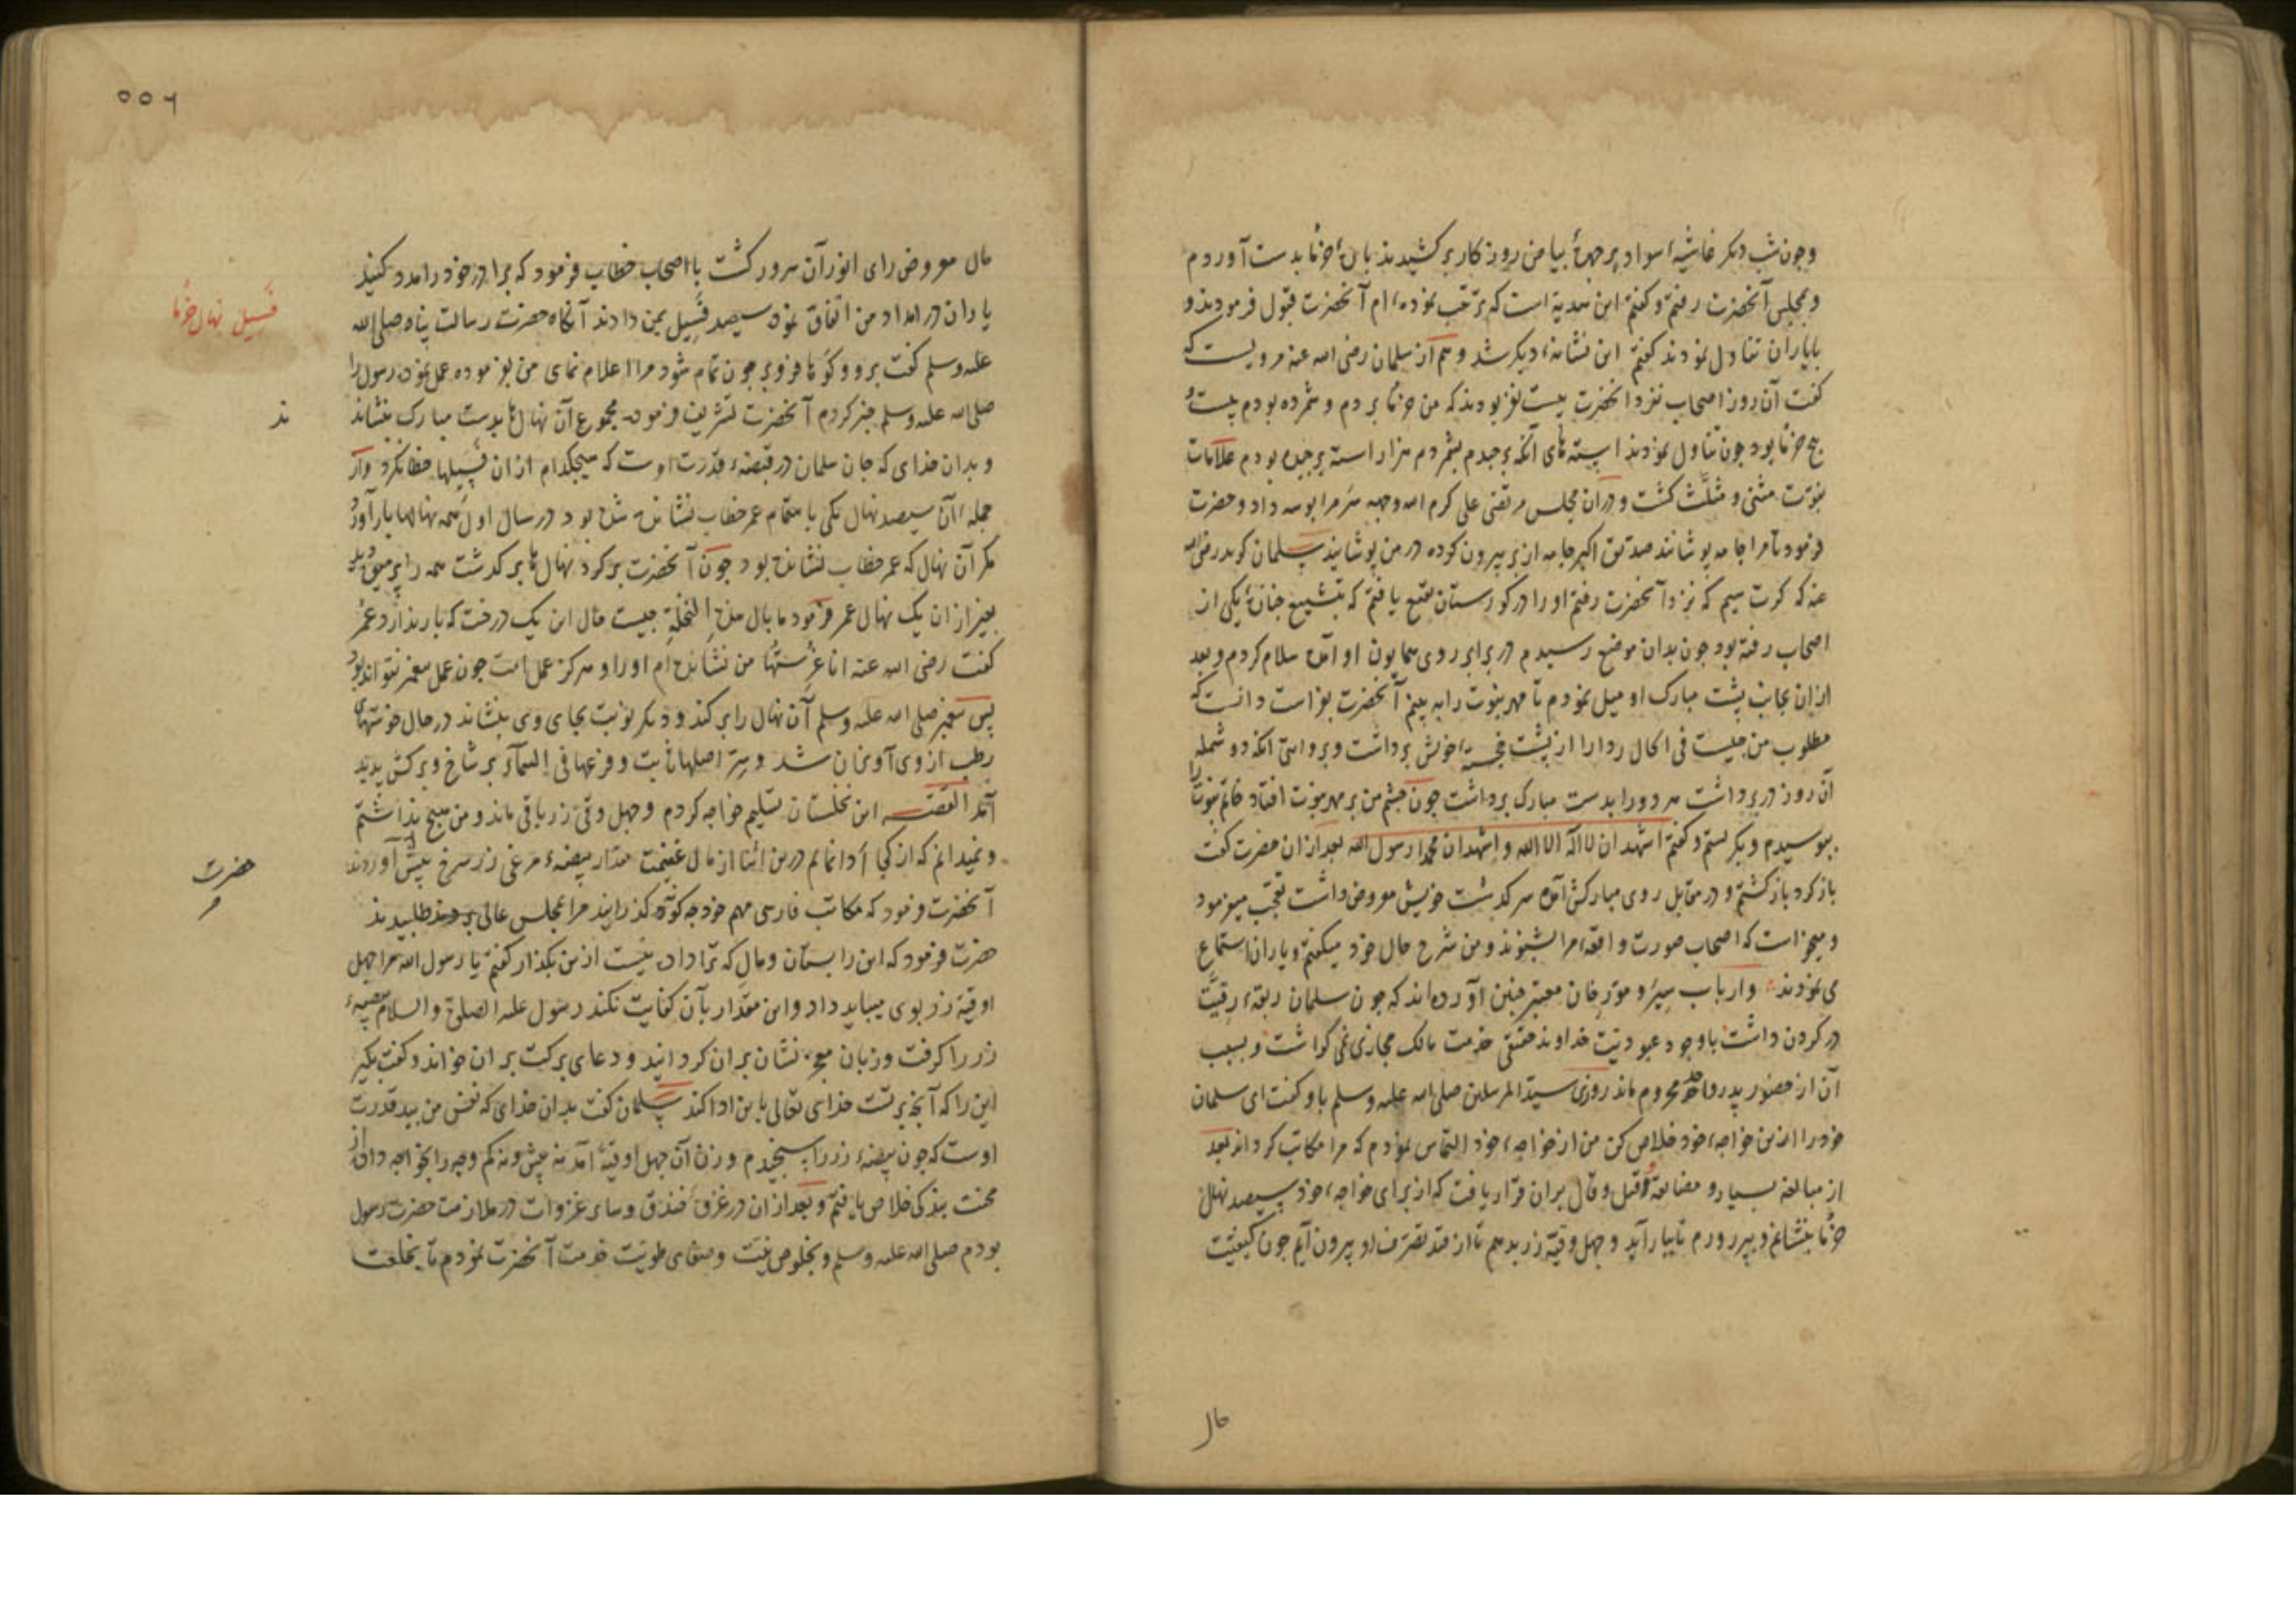 وجون شب دیکر غاشیهٔ سواد بر جهرهٔ بیاض روز کار بر کشیدند پارهٔ خرما بدست آوردم
و بمجلس آنحضرت رفتم و کفتم این هدیه است که مرتب نموده ام آنحضرت قبول فرمودند و
با یاران تناول نمودند کفتم این نشانهٔ دیکر شد و هم از سلمان رضی الله عنه مرویست که
کفت آن روز اصحاب نزد آنحضرت بیست نفر بودند که من خرما بردم و شمرده بودم بیست و
بنج خرما بود جون تناول نمودند استه های آنکه برجیدم بشمردم هزار استه برجیده بودم علامات
نبوت مثنی و مثلث کشت و در آن مجلس مرتضی علی کرم الله وجهه سر مرا بوسه داد و حضرت
فرمود تا مرا جامه پوشانند صدیق اکبر جامه از بر بیرون کرده در من پوشانید سلمان کوید رضی الله
عنه که کرت سیم که نزد آنحضرت رفتم او را در کورستان بقیع یافتم که بتشییع جنازهٔ یکی از
اصحاب رفته بود جون بدان موضع رسیدم در برابر روی همایون او آمده سلام کردم و بعد
از ان بجانب پشت مبارک او میل نمودم تا مهر نبوت را به بینم آنحضرت بفراست دانست که
مطلوب من جیست فی الحال ردا را از پشت خویش برداشت و بروایتی آنکه دو شمله
آن روز در بر داشت هر دو را بدست مبارک برداشت جون جشم من بر مهر نبوت افتاد خاتم نبوت را
ببوسیدم و بکریستم و کفتم اشهد ان لا اله الا الله و اشهد ان محمدا رسول الله بعد از ان حضرت کفت
باز کرد باز کشتم و در مقابل روی مبارکش آمده سر کذشت خویش معروض داشت تعجب میفرمود
و میخواست که اصحاب صورت واقعهٔ مرا بشنوند و من شرح حال خود میکفتم و یاران استماع
می نمودند و ارباب سیر و مورخان معتبر جنین آورده اند که جون سلمان ربقهٔ رقیت
در کردن داشت با وجود عبودیت خداوند حقیقی خدمت مالک مجازی نمی کذاشت و بسبب
آن از حضور بدر و احد محروم ماند روزی سید المرسلین صلی الله علیه وسلم باو کفت ای سلمان
خود را ازین خواجهٔ خود خلاص کن من از خواجهٔ خود التماس نمودم که مرا مکاتب کرداند بعد
از مبالغه بسیار و مضایقه و قیل و قال بران قرار یافت که از برای خواجهٔ خود سیصد نهال
خرما بنشانم و بپرورم تا ببار آید و جهل وقیه زر بدهم تا از قید تصرف او بیرون آیم جون کیفیت
حال
۵۵۲
حال معروض رای انور آن سرور کشت با اصحاب خطاب فرمود که برادر خود را مدد کنید
یاران در امداد من اتفاق نموده سیصد فسیل بمن دادند آنکاه حضرت رسالت پناه صلی الله
علیه وسلم کفت برو و کوها فرو بر جون تمام شود مرا اعلام نمای من بفرموده عمل نموده رسول را
صلی الله علیه وسلم خبر کردم آنحضرت تشریف فرموده مجموع آن نهال ها بدست مبارک بنشاند
و بدان خدای که جان سلمان در قبضهٔ قدرت اوست که هیجکدام از ان فسیلها خطا نکرد و از
جملهٔ آن سیصد نهال یکی باهتمام عمر خطاب نشانده شده بود در سال اول همه نهالها بار آورد
مکر آن نهال که عمر خطاب نشانده بود جون آنحضرت بر کرد نهال ها بر کذشت همه را بر میوه دید
بغیر از ان یک نهال عمر فرمود ما بال هذه النخلة جیست حال این یک درخت که بار ندارد عمر
کفت رضی الله عنه انا غرستها من نشانده ام او را و هرکز عمل امت جون عمل پیغمبر نتواند بود
پس پیغمبر صلی الله علیه وسلم آن نهال را بر کند و دیکر نوبت بجای وی بنشاند در حال خوشهای
رطب از وی آویزان شد و سر اصلها ثابت و فرعها فی السماء بر شاخ و برکش پدید
آمد القصه این نخلستان تسلیم خواجه کردم و جهل وقیه زر باقی ماند و من هیج نداشتم
و نمیدانم که از کجا ادا نمایم درین اثنا از مال غنیمت مقدار بیضهٔ مرغی زر سرخ پیش آوردند
آنحضرت فرمود که مکاتب فارسی مهم خود جکونه کذرانید مرا بمجلس عالی طلبیدند
حضرت فرمود که این را بستان و مال که ترا دادنیست ازین بکذار کفتم یا رسول الله مرا جهل
اوقیه زر بوی میباید داد و این مقدار بآن کفایت نکند رسول علیه الصلوة والسلام بیضهٔ
زر را کرفت و زبان معجز نشان بران کردانید و دعای برکت بران خواند و کفت بکیر
این را که آنچه برتست خدای تعالی باین ادا کند سلمان کفت بدان خدای که نفس من بید قدرت
اوست که جون بیضهٔ زر را بسنجیدم وزن آن جهل اوقیه آمد نه بیش و نه کم وجه را بخواجه داده از
محنت بندکی خلاص یافتم و بعد از ان در غزوهٔ خندق و سایر غزوات در ملازمت حضرت رسول
بودم صلی الله علیه وسلم و بخلوص نیت و صفای طویت خدمت آنحضرت نمودم تا بخلعت
فسیل نهال خرما
ند
حضرت